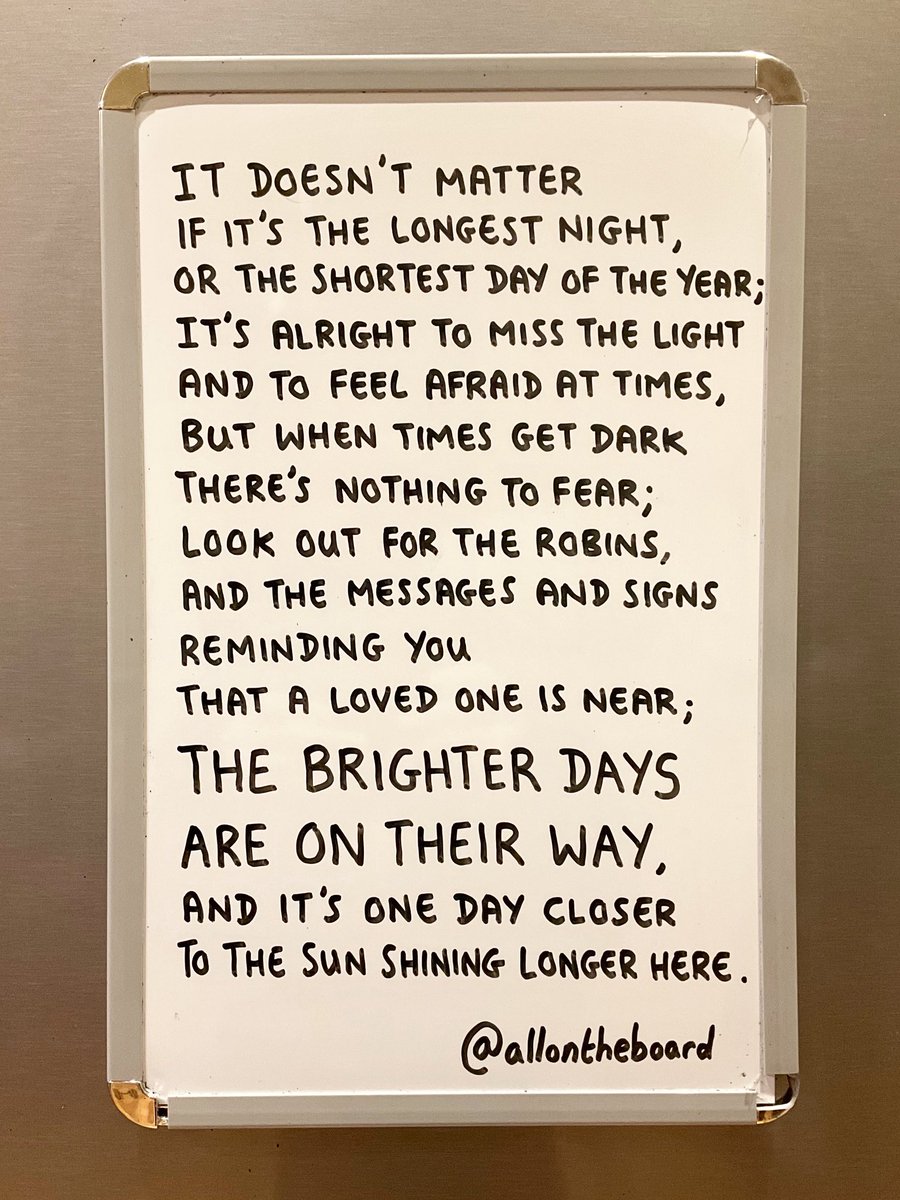 IT DOESN'T MATTER
IF IT'S THE LONGEST NIGHT,
OR THE SHORTEST DAY OF THE YEAR;
IT'S ALRIGHT TO MISS THE LIGHT
AND TO FEEL AFRAID AT TIMES,
BUT WHEN TIMES GET DARK
THERE'S NOTHING TO FEAR;
LOOK OUT FOR THE ROBINS,
AND THE MESSAGES AND SIGNS
REMINDING YOU
THAT A LOVED ONE IS NEAR;
THE BRIGHTER DAYS
ARE ON THEIR WAY,
AND IT'S ONE DAY CLOSER
TO THE SUN SHINING LONGER HERE.
@allontheboard